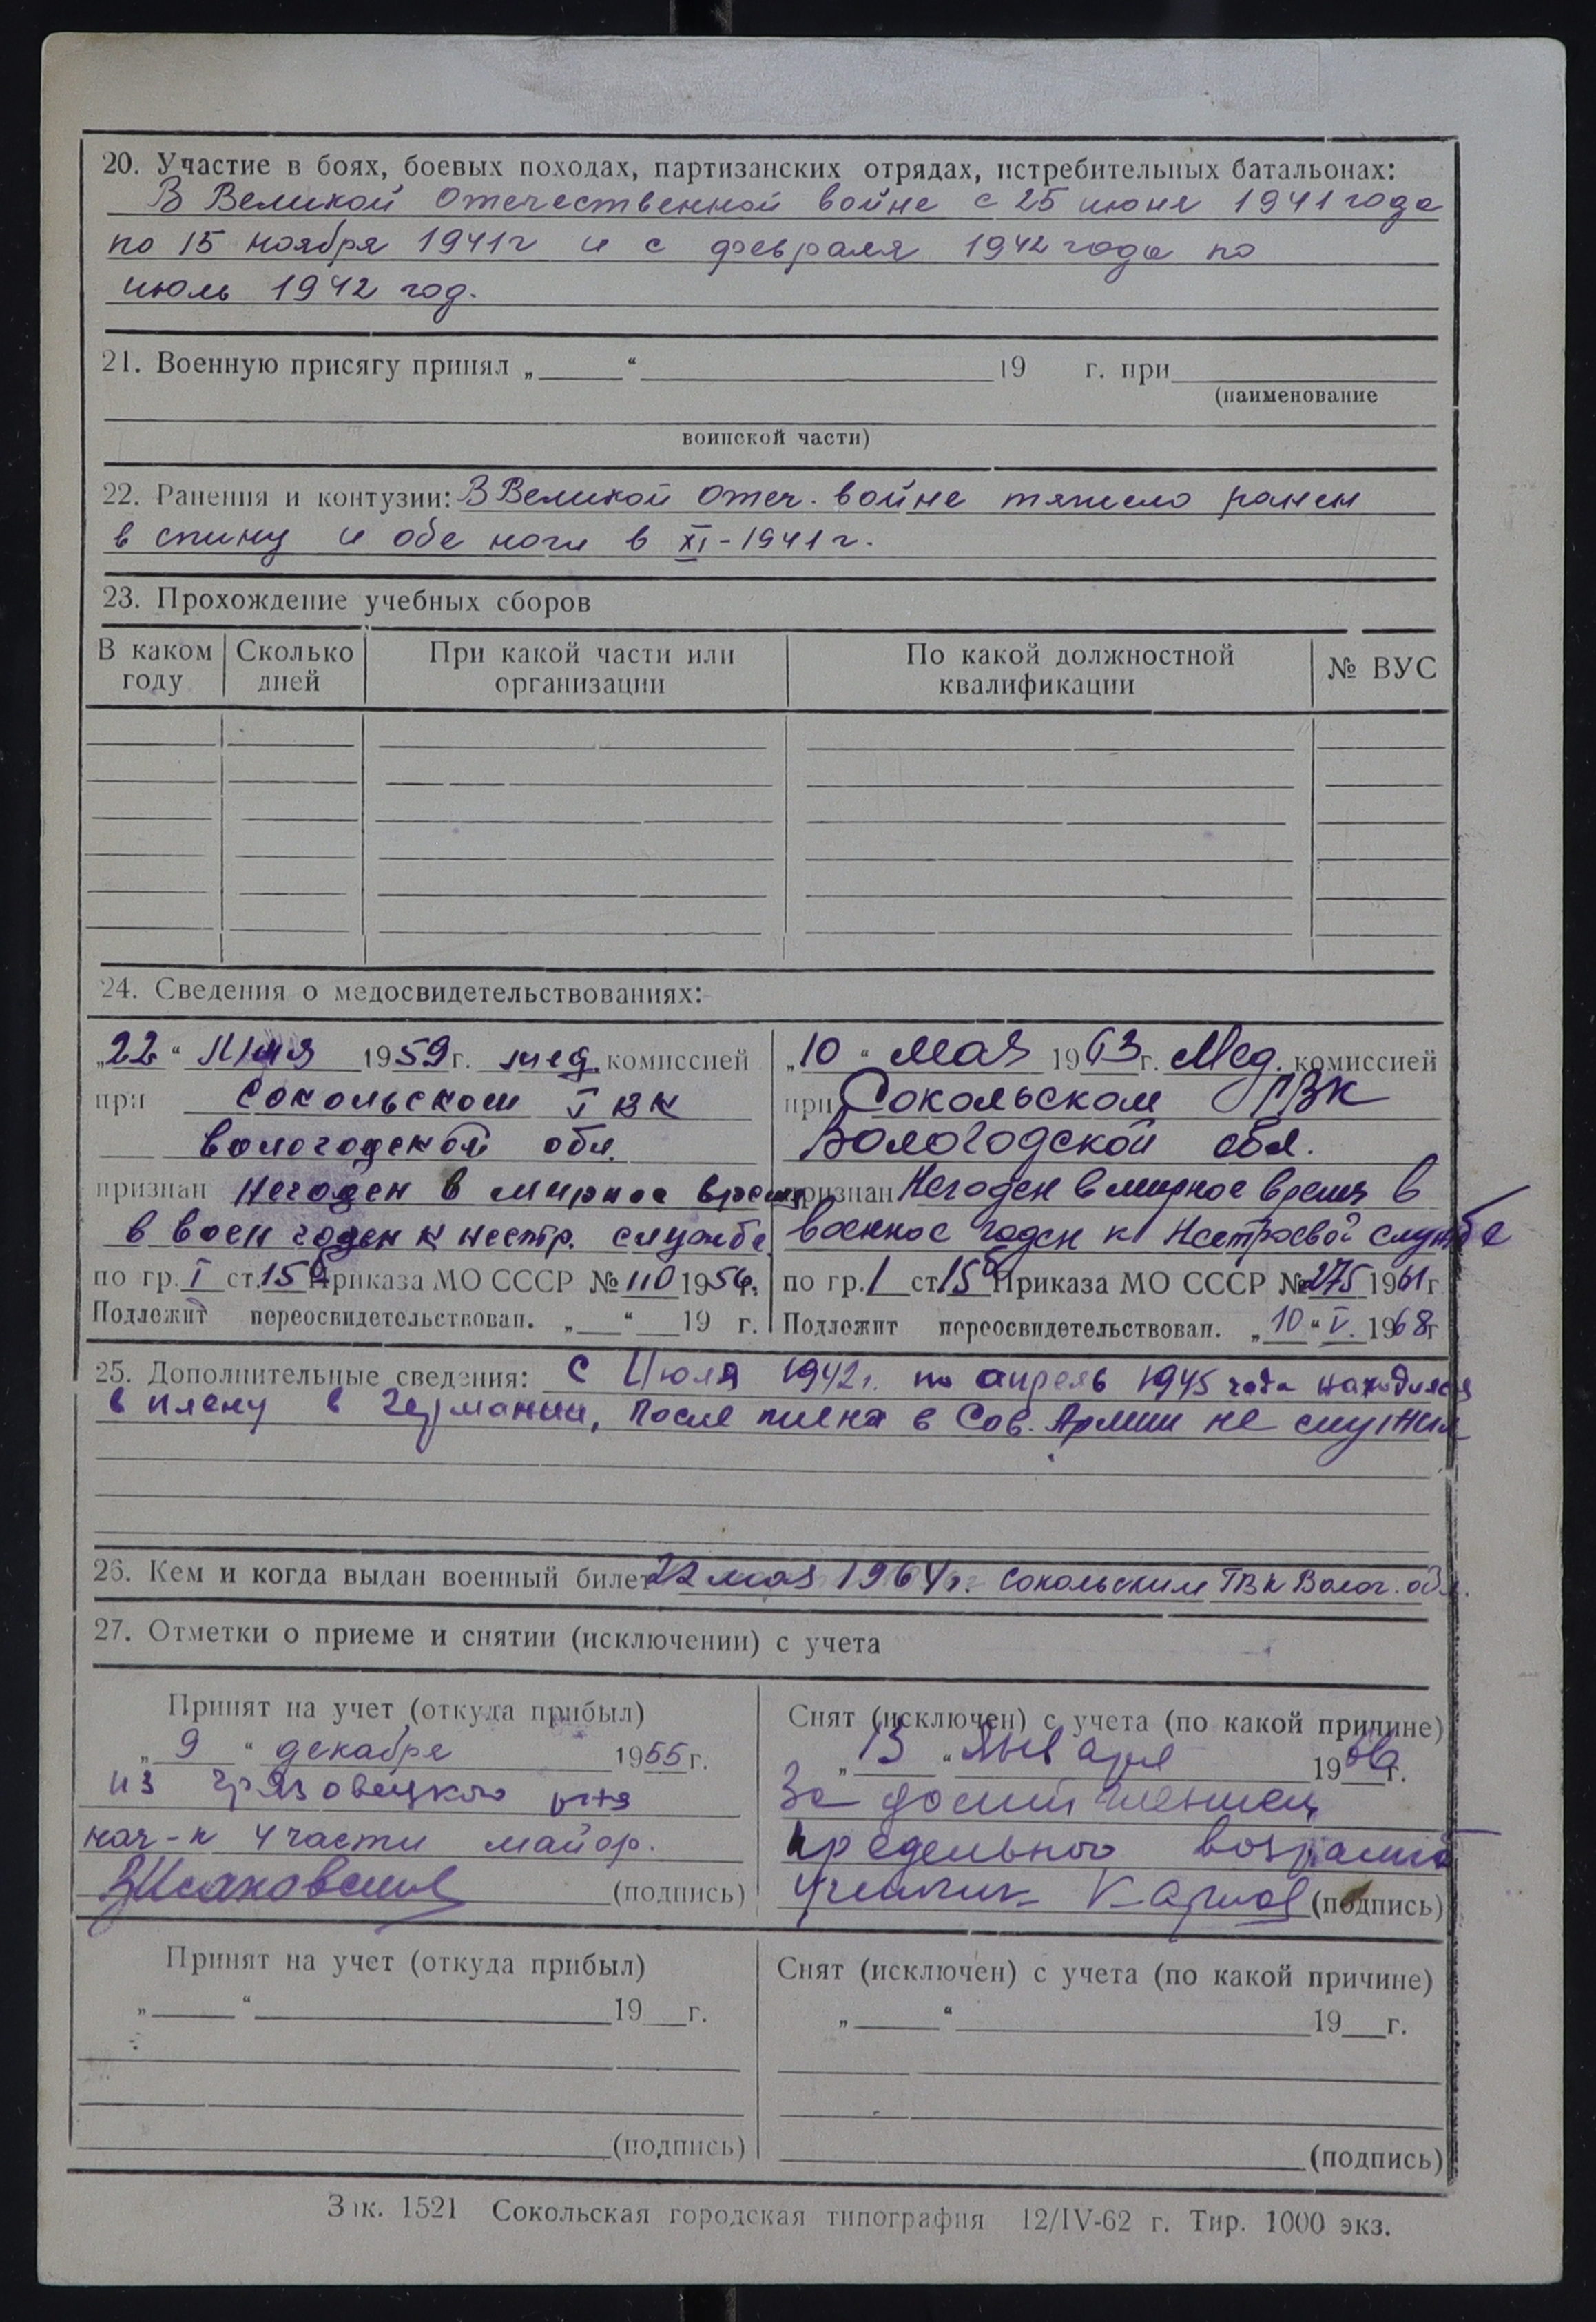 20. Участие в боях, боевых походах, партизанских отрядах, истребительных батальонах:
В Великой Отечественной войне с 25 июня 1941 года
по 15 ноября 1941г и с февраля 1942 года по
июль 1942 год.
21. Военную присягу принял „ “ 19 г. при
(наименование
воинской части)
22. Ранения и контузии: В Великой Отеч. войне тяжело ранен
в спину и обе ноги в XI-1941г.
23. Прохождение учебных сборов
В каком году Сколько дней При какой части или организации По какой должностной квалификации № ВУС
24. Сведения о медосвидетельствованиях:
„22“ Июня 1959г. мед. комиссией
при Сокольском ГВК
Вологодской обл.
признан Негоден в мирное время
в воен годен к нестр. службе
по гр. I ст. 15б Приказа МО СССР № 110 1956г.
Подлежит переосвидетельствован. „ “ 19 г.
„10“ мая 1963г. Мед. комиссией
при Сокольском ГВК
Вологодской обл.
признан Негоден в мирное время в
военное годен к Нестроевой службе
по гр. 1 ст. 15б Приказа МО СССР № 275 1961г
Подлежит переосвидетельствован. „10“ V. 1968г
25. Дополнительные сведения: С Июля 1942г. по апрель 1945 года находился
в плену в Германии, После плена в Сов. Армии не служил
26. Кем и когда выдан военный билет 22 мая 1964г. Сокольским ГВК Волог. обл.
27. Отметки о приеме и снятии (исключении) с учета
Принят на учет (откуда прибыл)
„9“ декабря 1955г.
из Грязовецкого р-на
нач-к 4 части майор.
(подпись)
Снят (исключен) с учета (по какой причине)
„13“ Января 19 г.
За достижением
предельного возраста
Карпов (подпись)
Принят на учет (откуда прибыл)
„ “ 19 г.
(подпись)
Снят (исключен) с учета (по какой причине)
„ “ 19 г.
(подпись)
Зак. 1521 Сокольская городская типография 12/IV-62 г. Тир. 1000 экз.